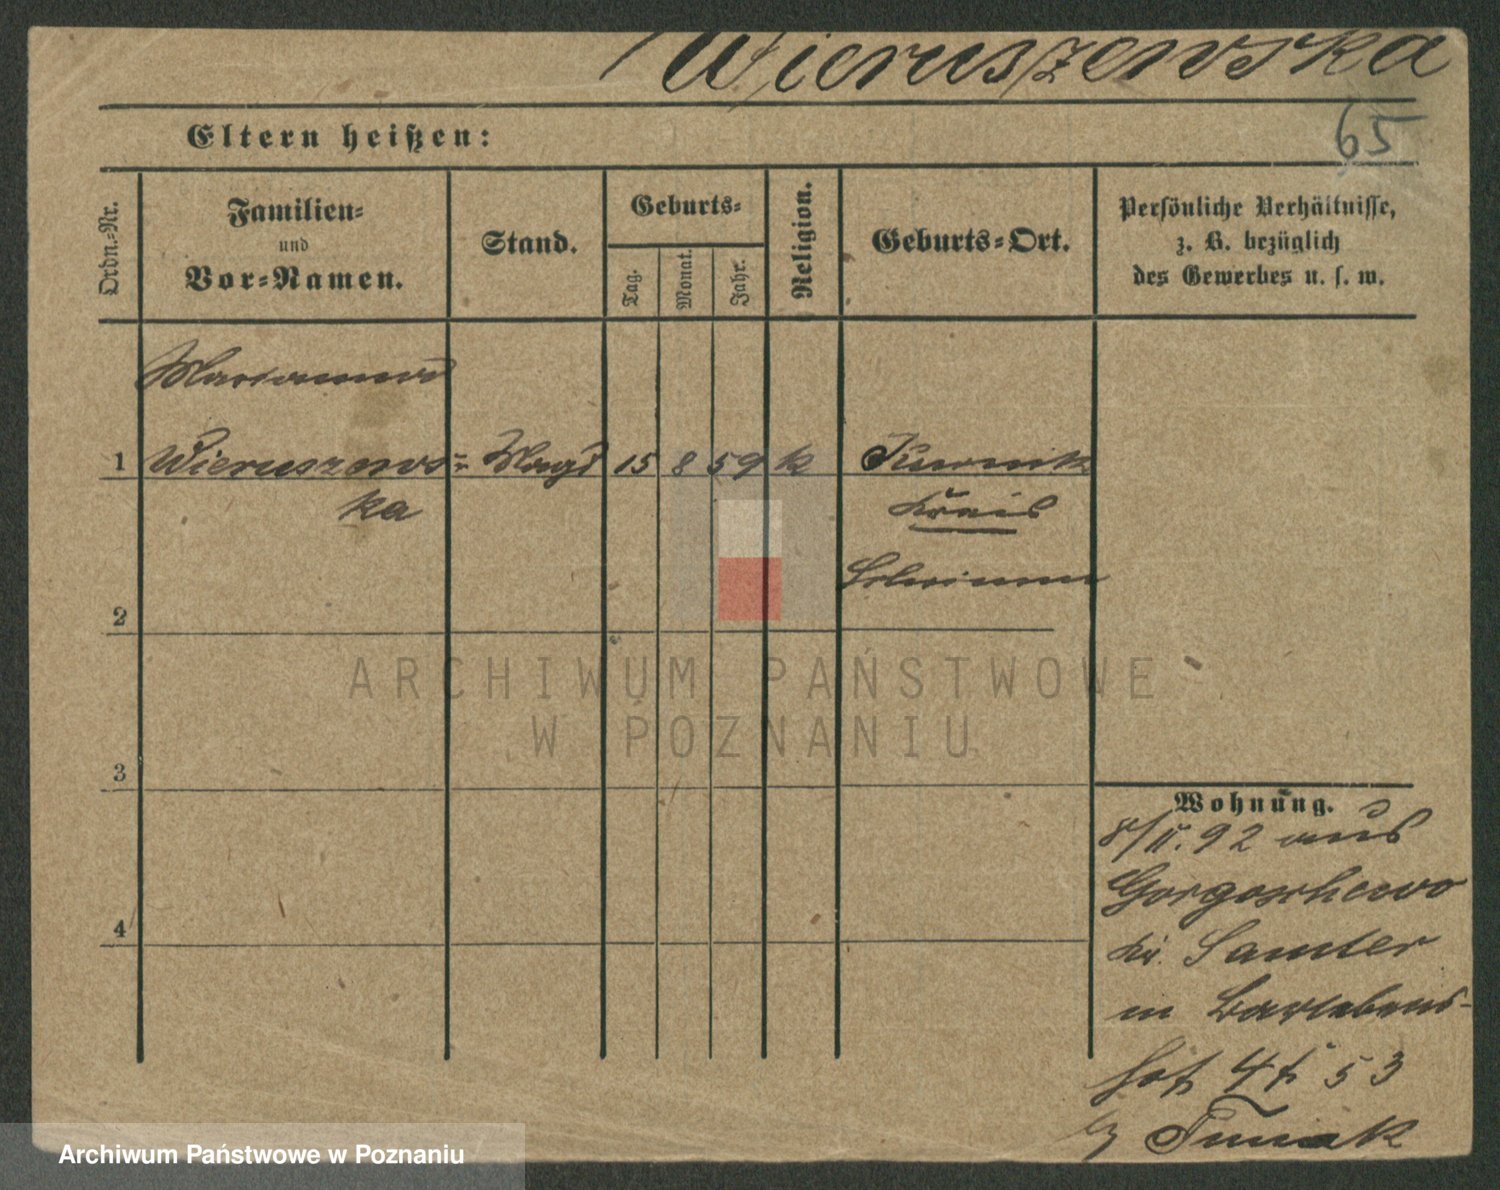 Wieruszewska
65
Eltern heißen:
Ordn.-Nr.
Familien-
und
Vor-Namen.
Stand.
Geburts-
Tag.
Monat.
Jahr.
Religion.
Geburts-Ort.
Persönliche Verhältnisse,
z. B. bezüglich
des Gewerbes u. s. w.
Marianna
1 Wieruszews- Magd 15 8 59 k Kurnik
ka Kreis
Schrimm
2
3
4
Wohnung.
8/II. 92 aus
Gorgoschewo
Kr. Samter
in Bartebens-
hof 53
ARCHIWUM PAŃSTWOWE
W POZNANIU
Archiwum Państwowe w Poznaniu